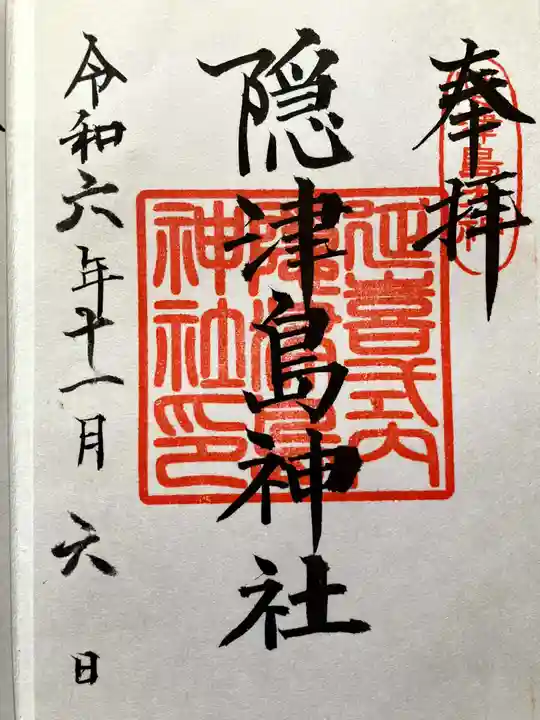 奉拝
延喜式内
隠津島
神社印
隠津島神社
令和六年十一月六日